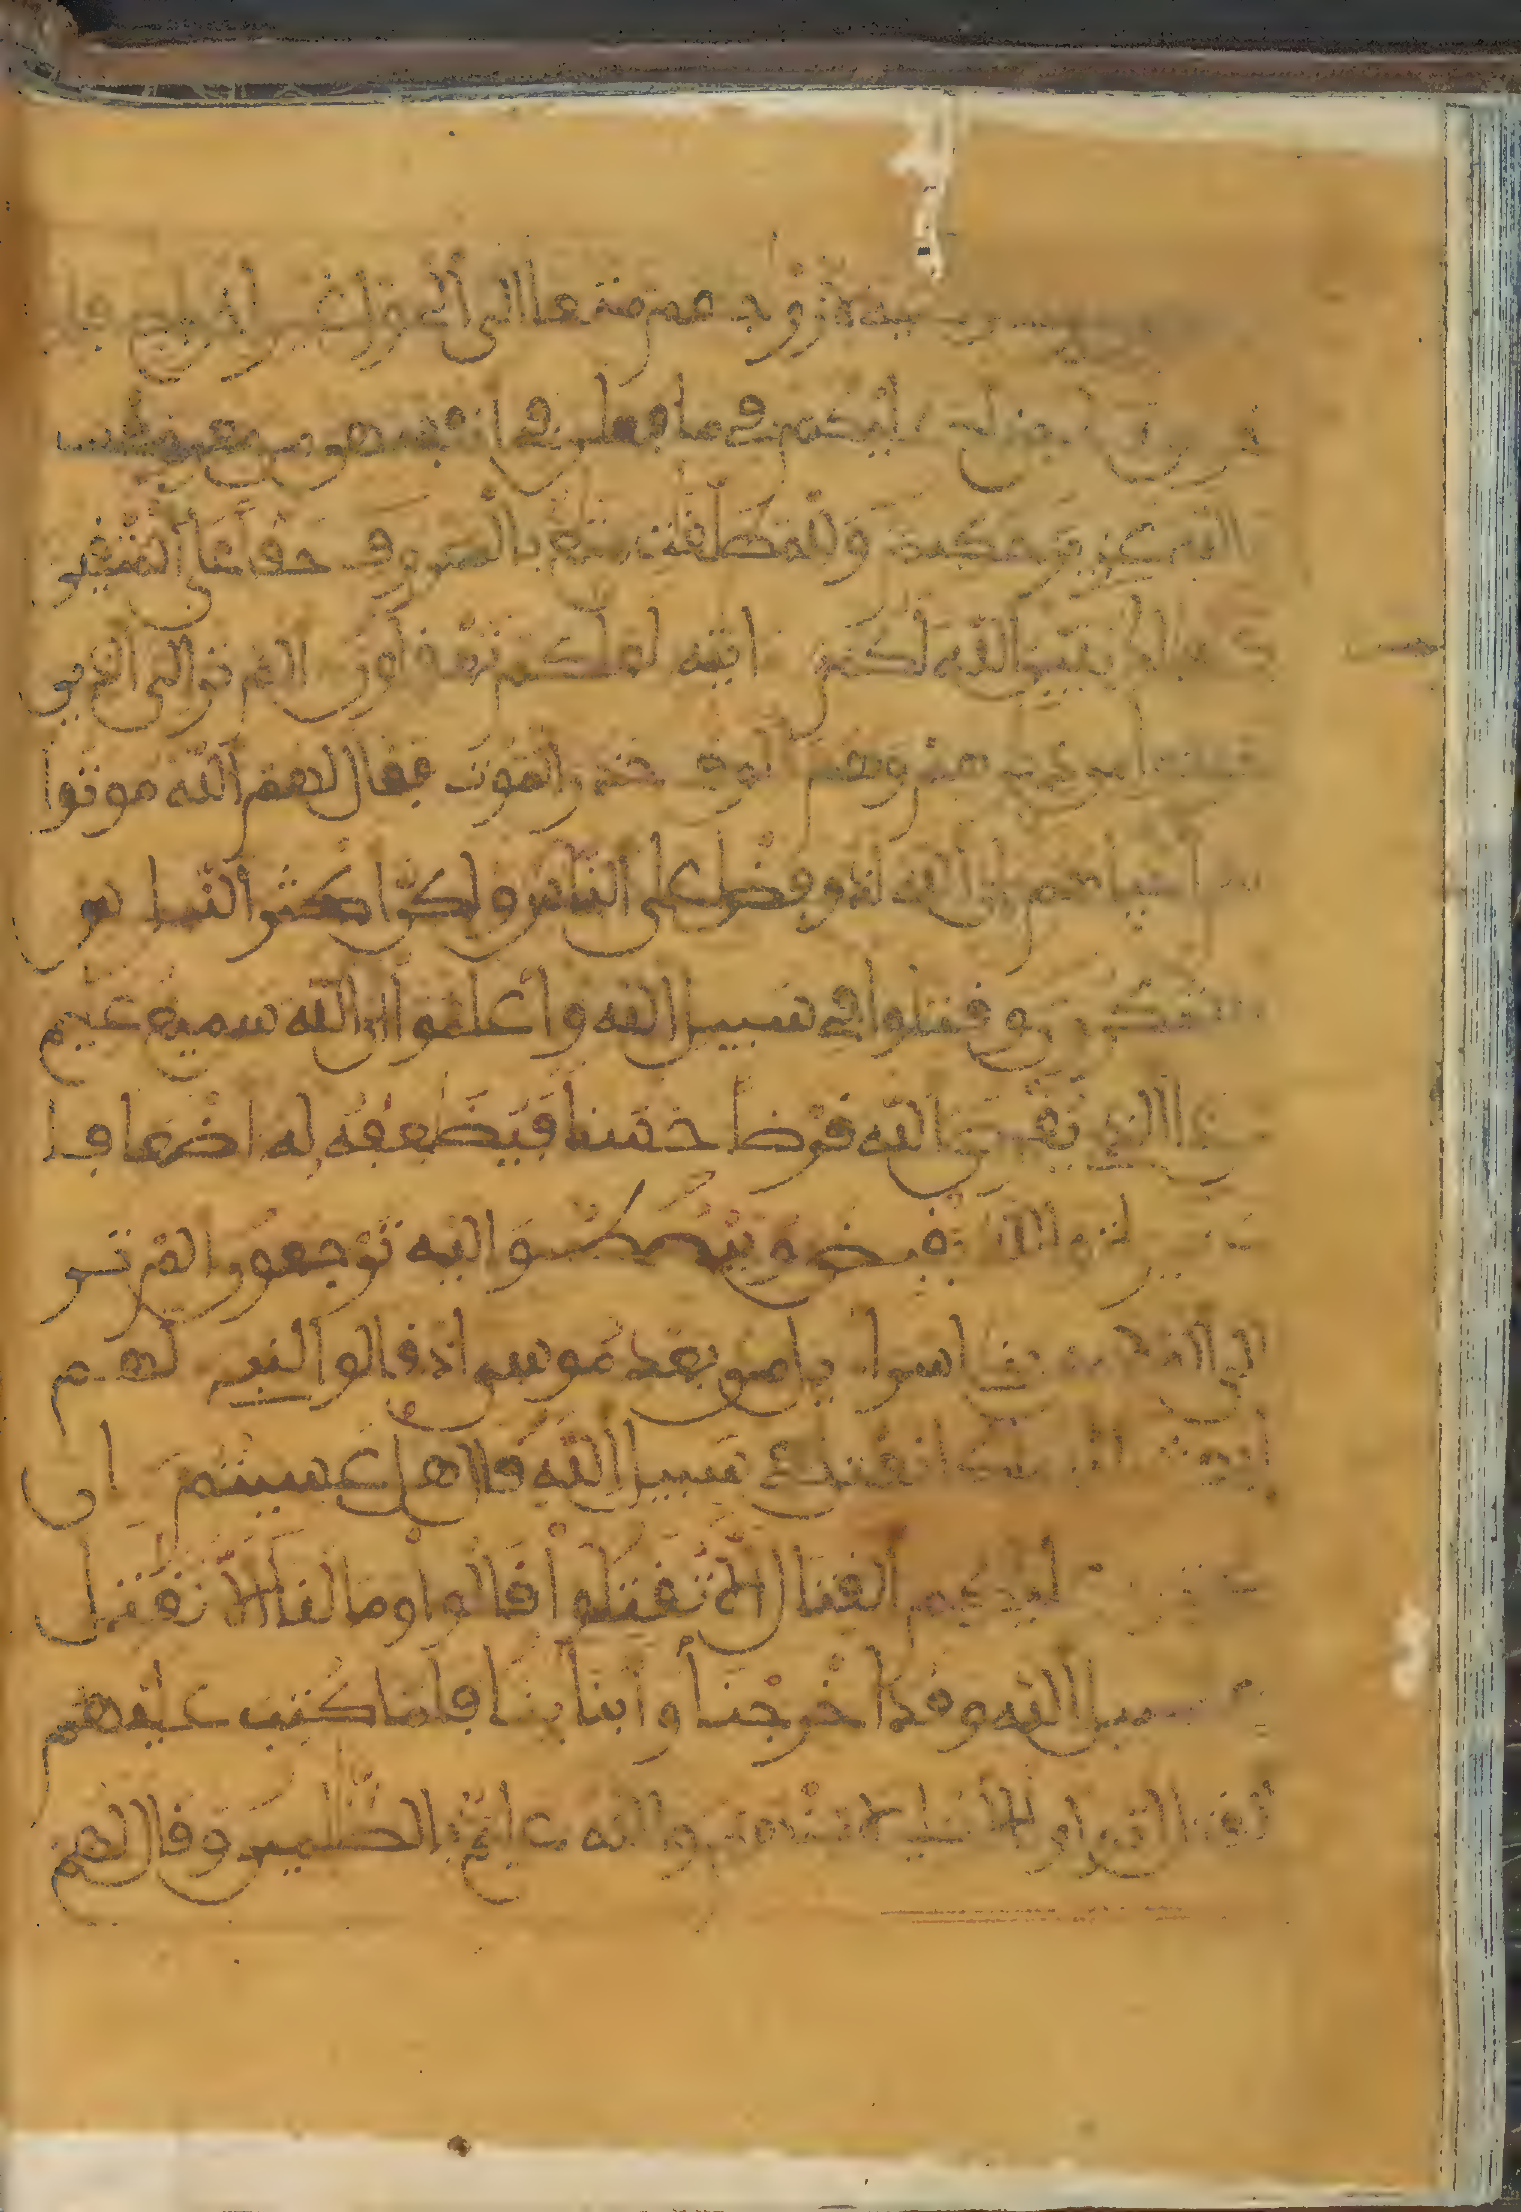 وصية لأزوجهم متعا إلى الحول غير إخراج فإن
خرجن عليكم في ما فعلن في أنفسهن من معروف
والله عزيز حكيم وللمطلقت متع بالمعروف حقا على المتقين
كذلك يبين الله لكم ايته لعلكم تعقلون الم تر الى الذين
ديرهم وهم الوف حذر الموت فقال لهم الله موتوا
ثم احياهم ان الله لذو فضل على الناس ولكن اكثر الناس لا
يشكرون وقتلوا في سبيل الله واعلموا ان الله سميع عليم
من ذا الذي يقرض الله قرضا حسنا فيضعفه له اضعافا
والله يقبض ويبصط واليه ترجعون الم تر
الى الملا من بني اسراءيل من بعد موسى اذ قالوا لنبي لهم
ابعث لنا ملكا نقتل في سبيل الله قال هل عسيتم ان
كتب عليكم القتال الا تقتلوا قالوا وما لنا الا نقتل
في سبيل الله وقد اخرجنا وابناينا فلما كتب عليهم
القتال تولوا الا قليلا منهم والله عليم بالظلمين وقال لهم